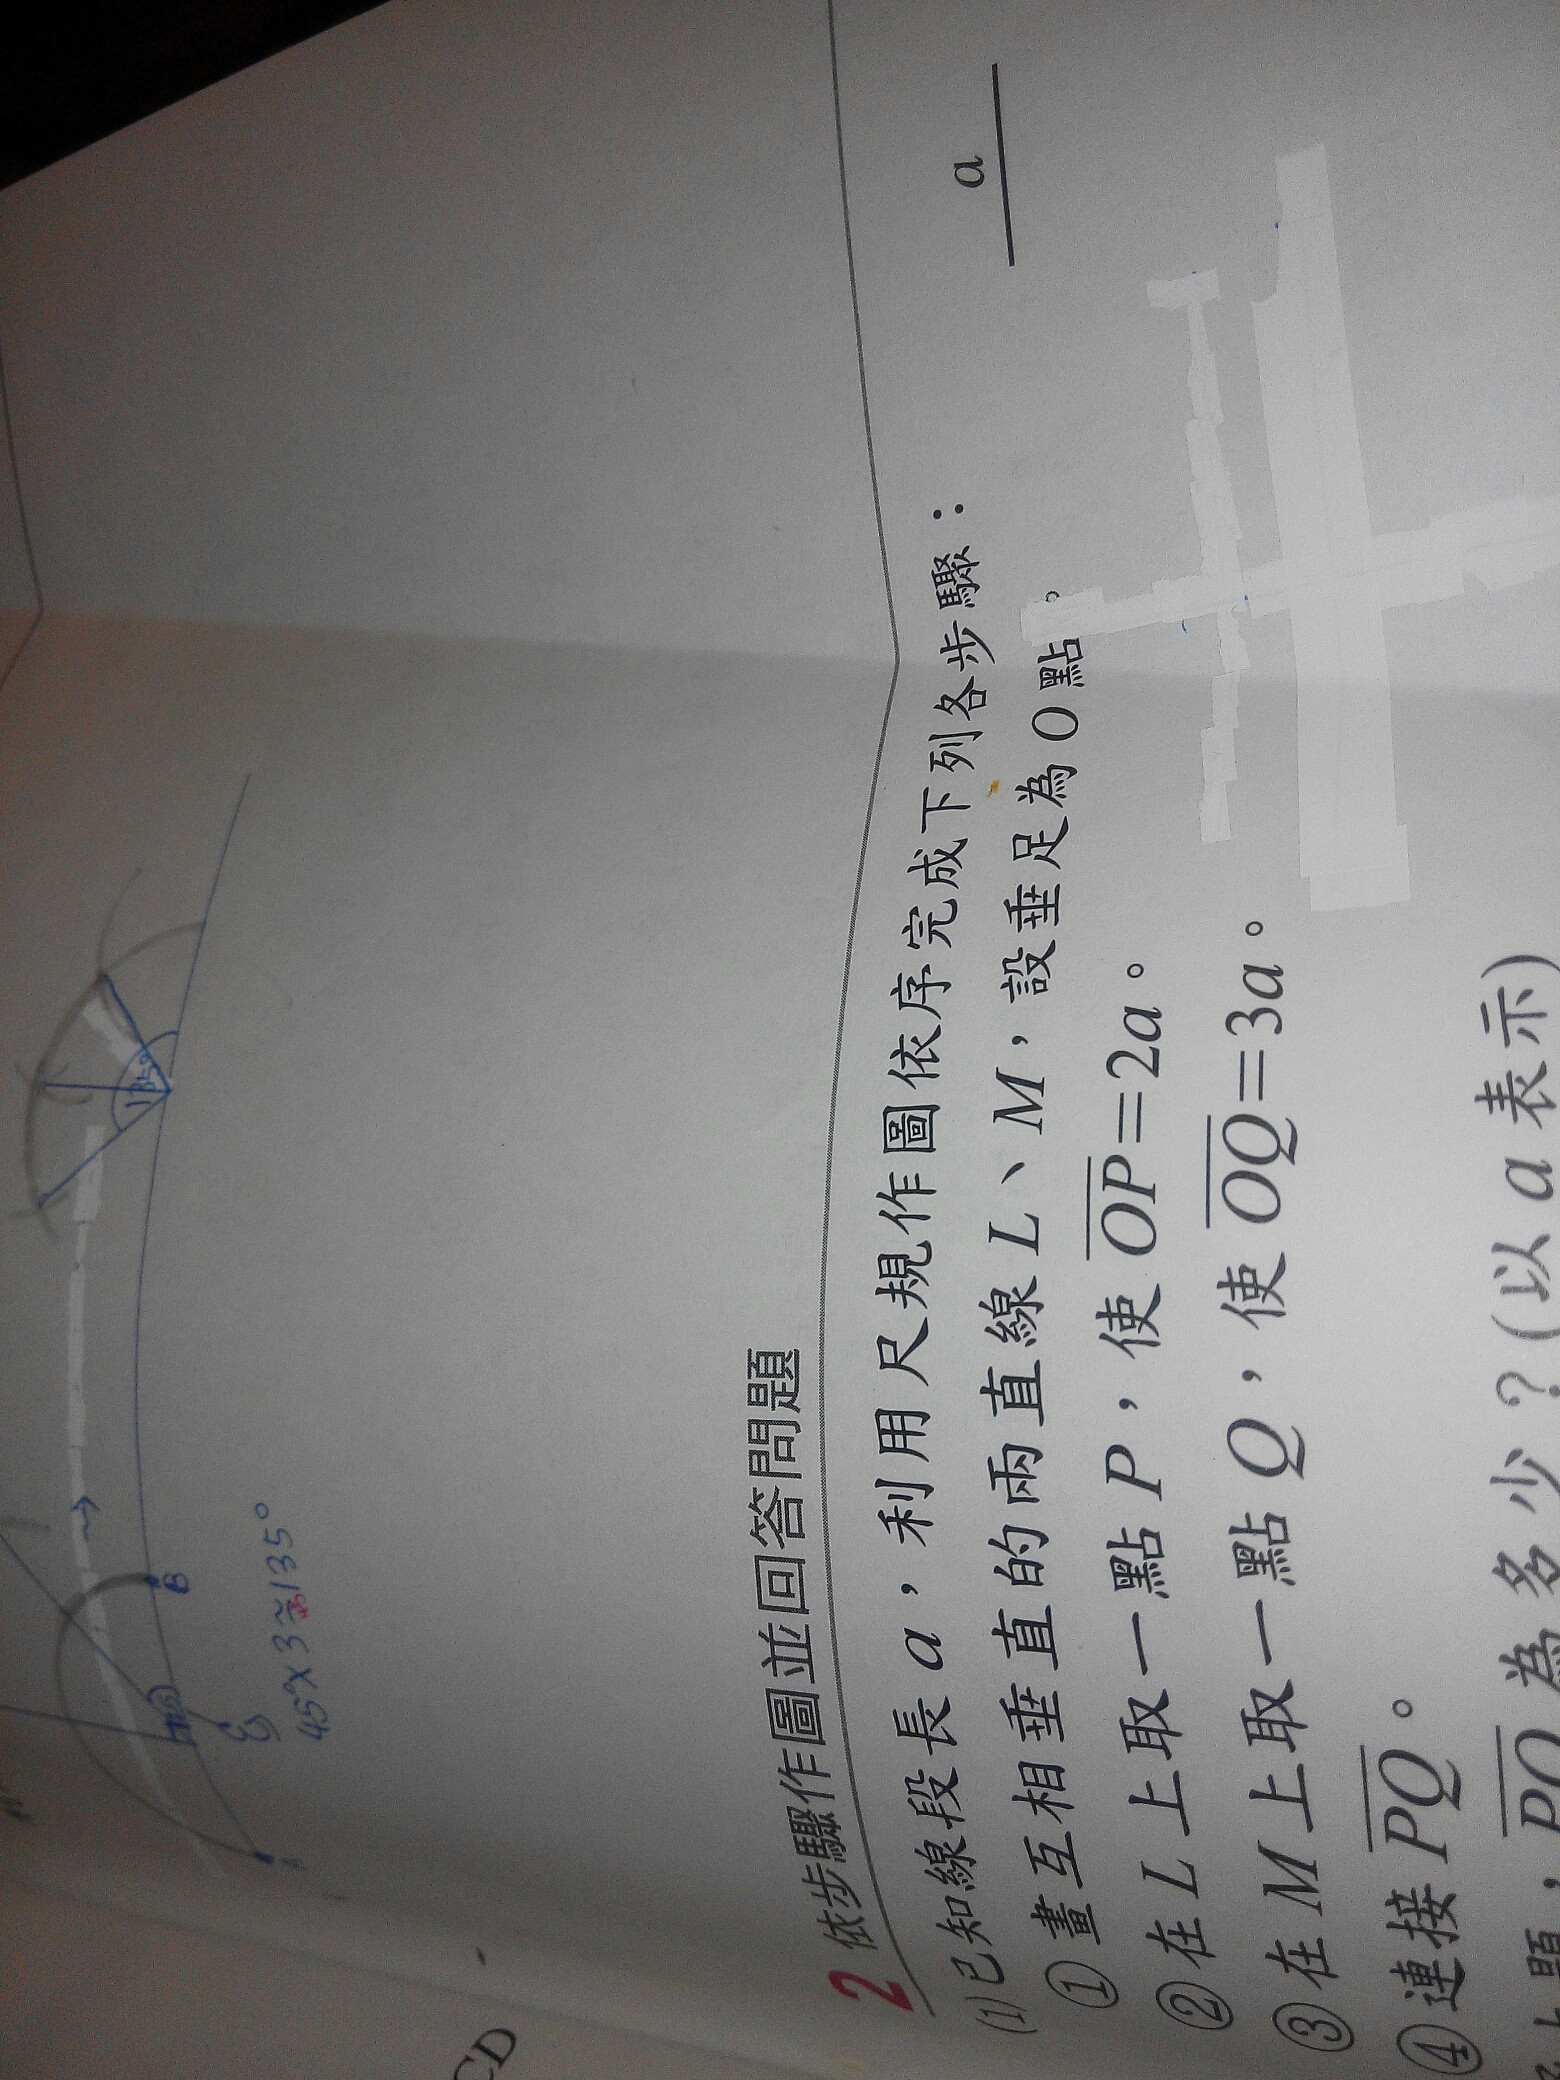 135°
B
A
45°×3≈135°
CD
2 依步驟作圖並回答問題
(1)已知線段長a，利用尺規作圖依序完成下列各步驟：
a
①畫互相垂直的兩直線L、M，設垂足為O點。
②在L上取一點P，使OP=2a。
③在M上取一點Q，使OQ=3a。
④連接PQ。
上題，PQ為多少？(以a表示)